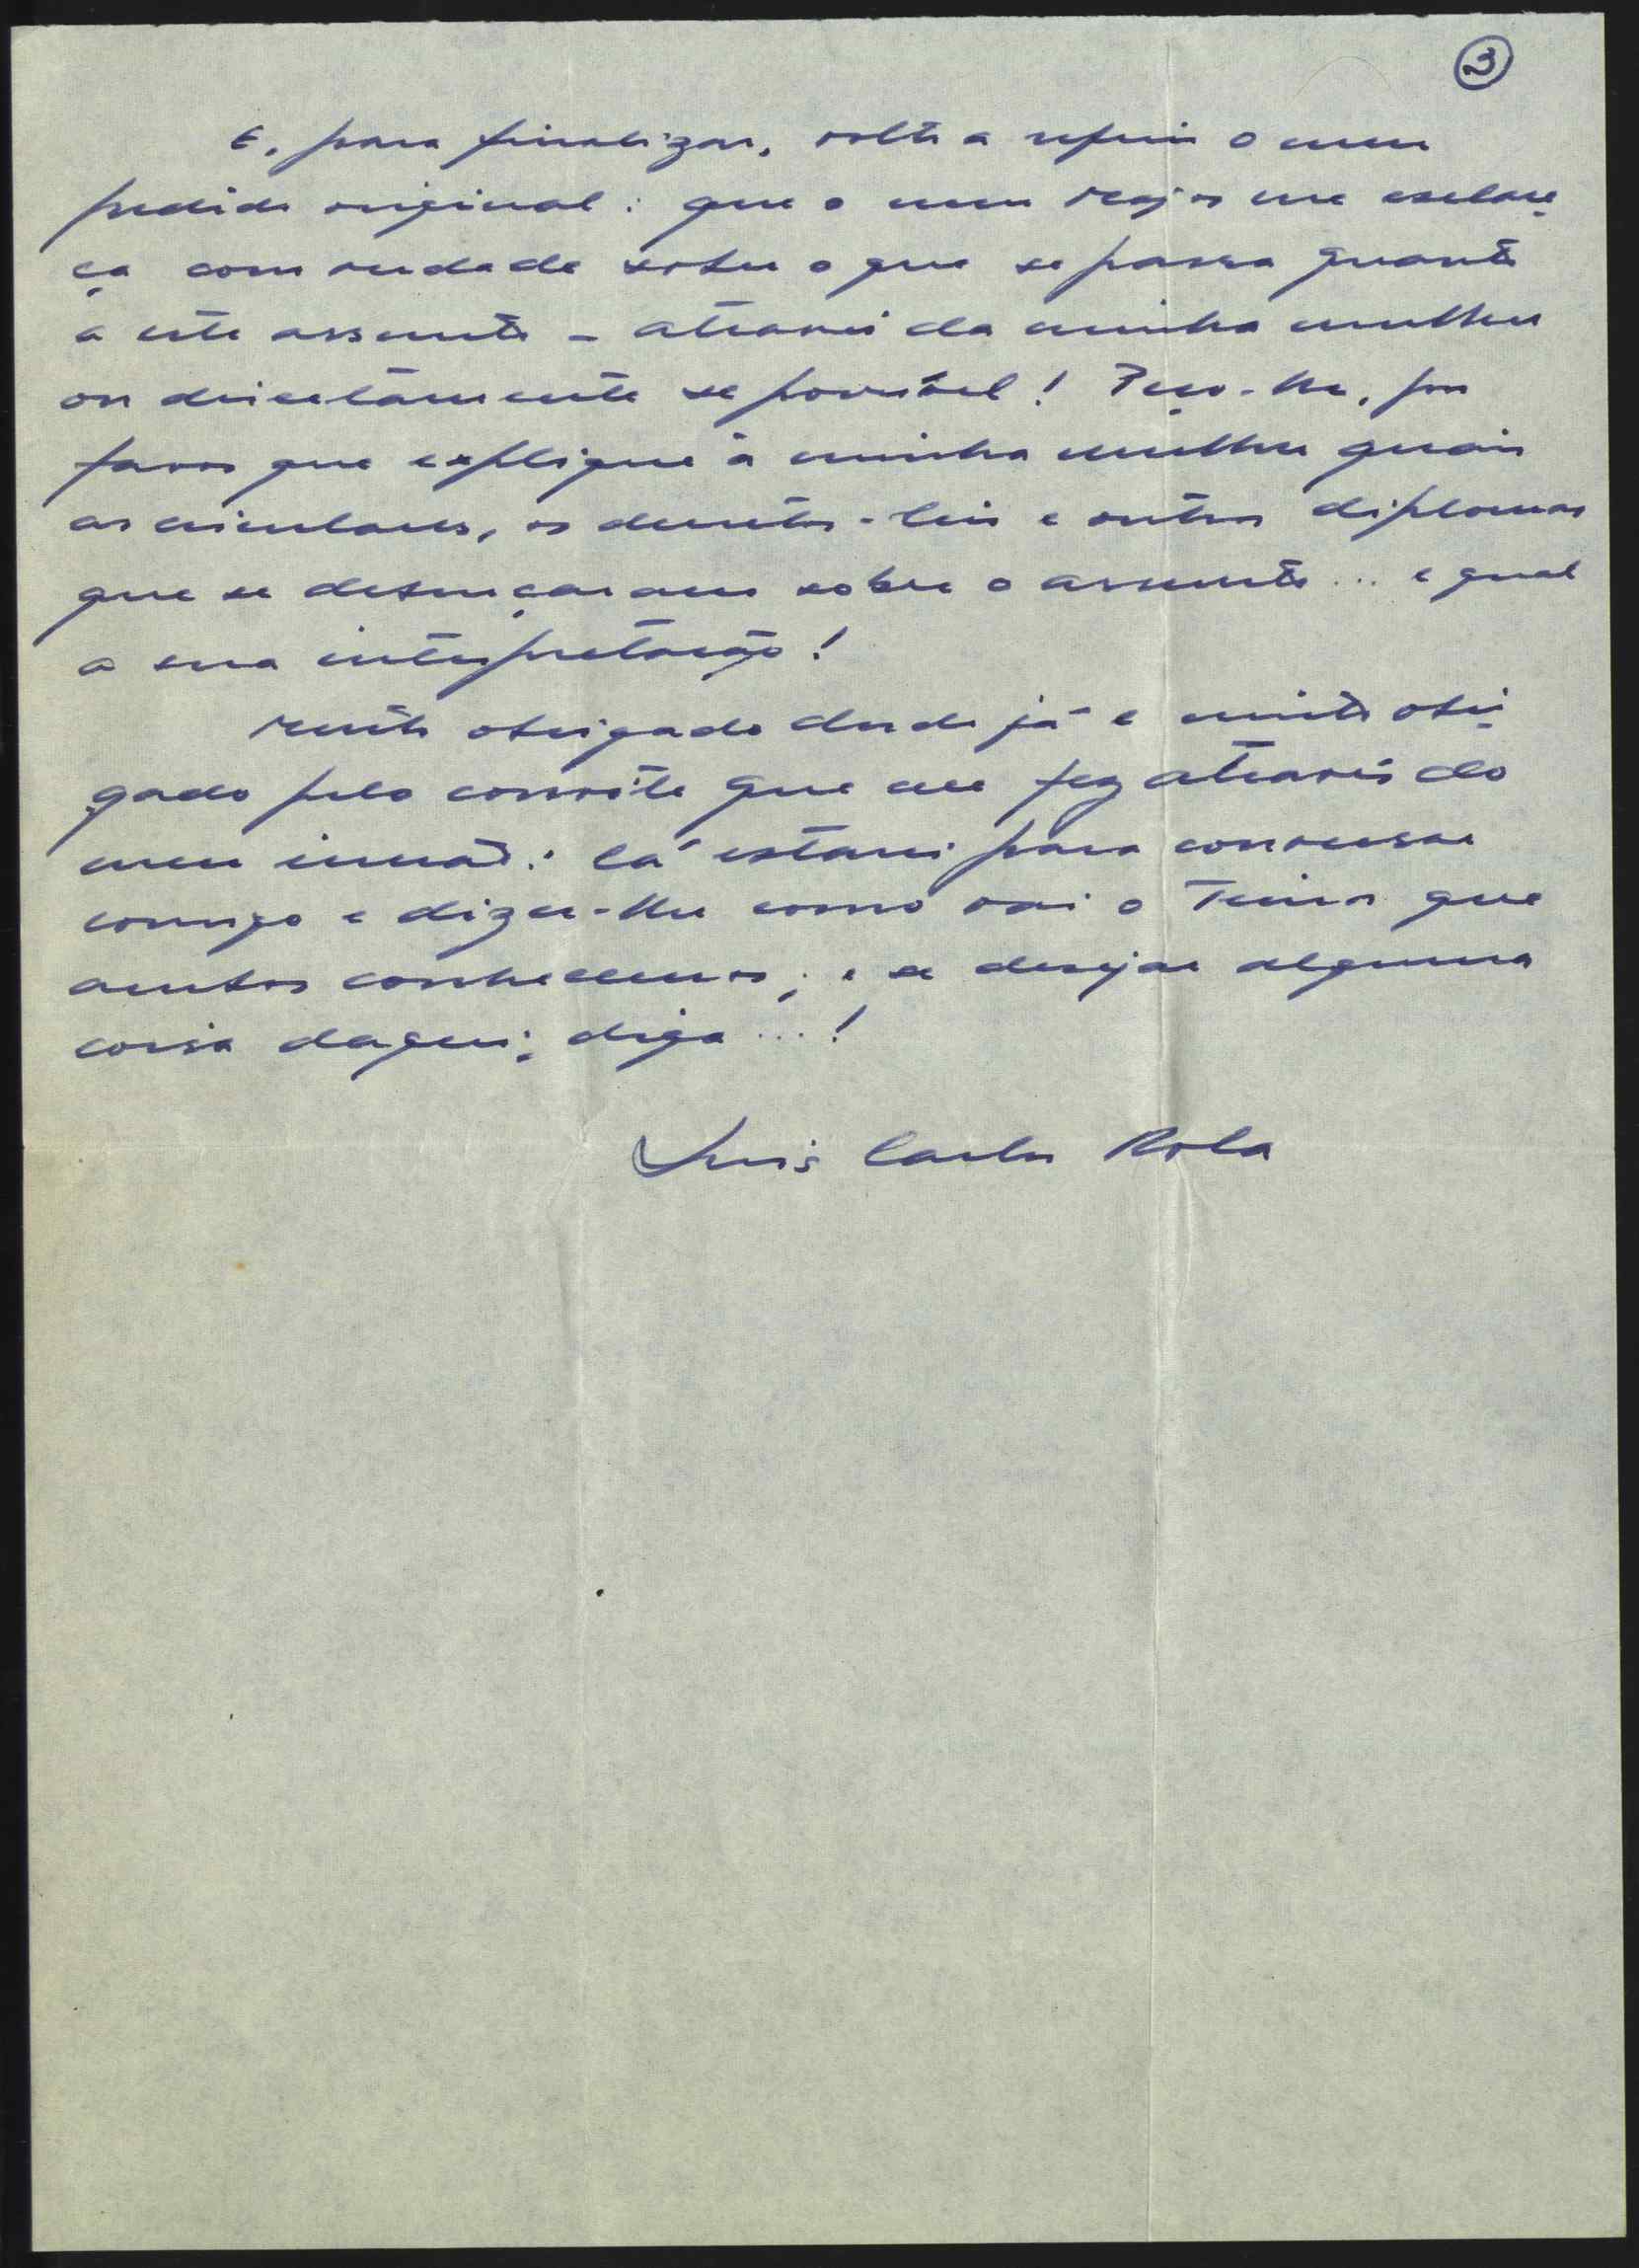 3
E, para finalizar, volto a referir o meu
pedido original: que o meu Major me esclare
ça com verdade sobre o que se passa quanto
a este assunto - através da minha mulher
ou directamente se possível! Peço-lhe, por
favor que explique à minha mulher quais
as circulares, os decretos-leis e outros diplomas
que se debruçaram sobre o assunto... e qual
a sua interpretação!
Muito obrigado desde já e muito obri
gado pelo convite que me fez através do
meu irmão: lá estarei para conversar
consigo e dizer-lhe como vai o Timor que
ambos conhecemos; e se desejar alguma
coisa daqui, diga...!
Luis Carlos Rola